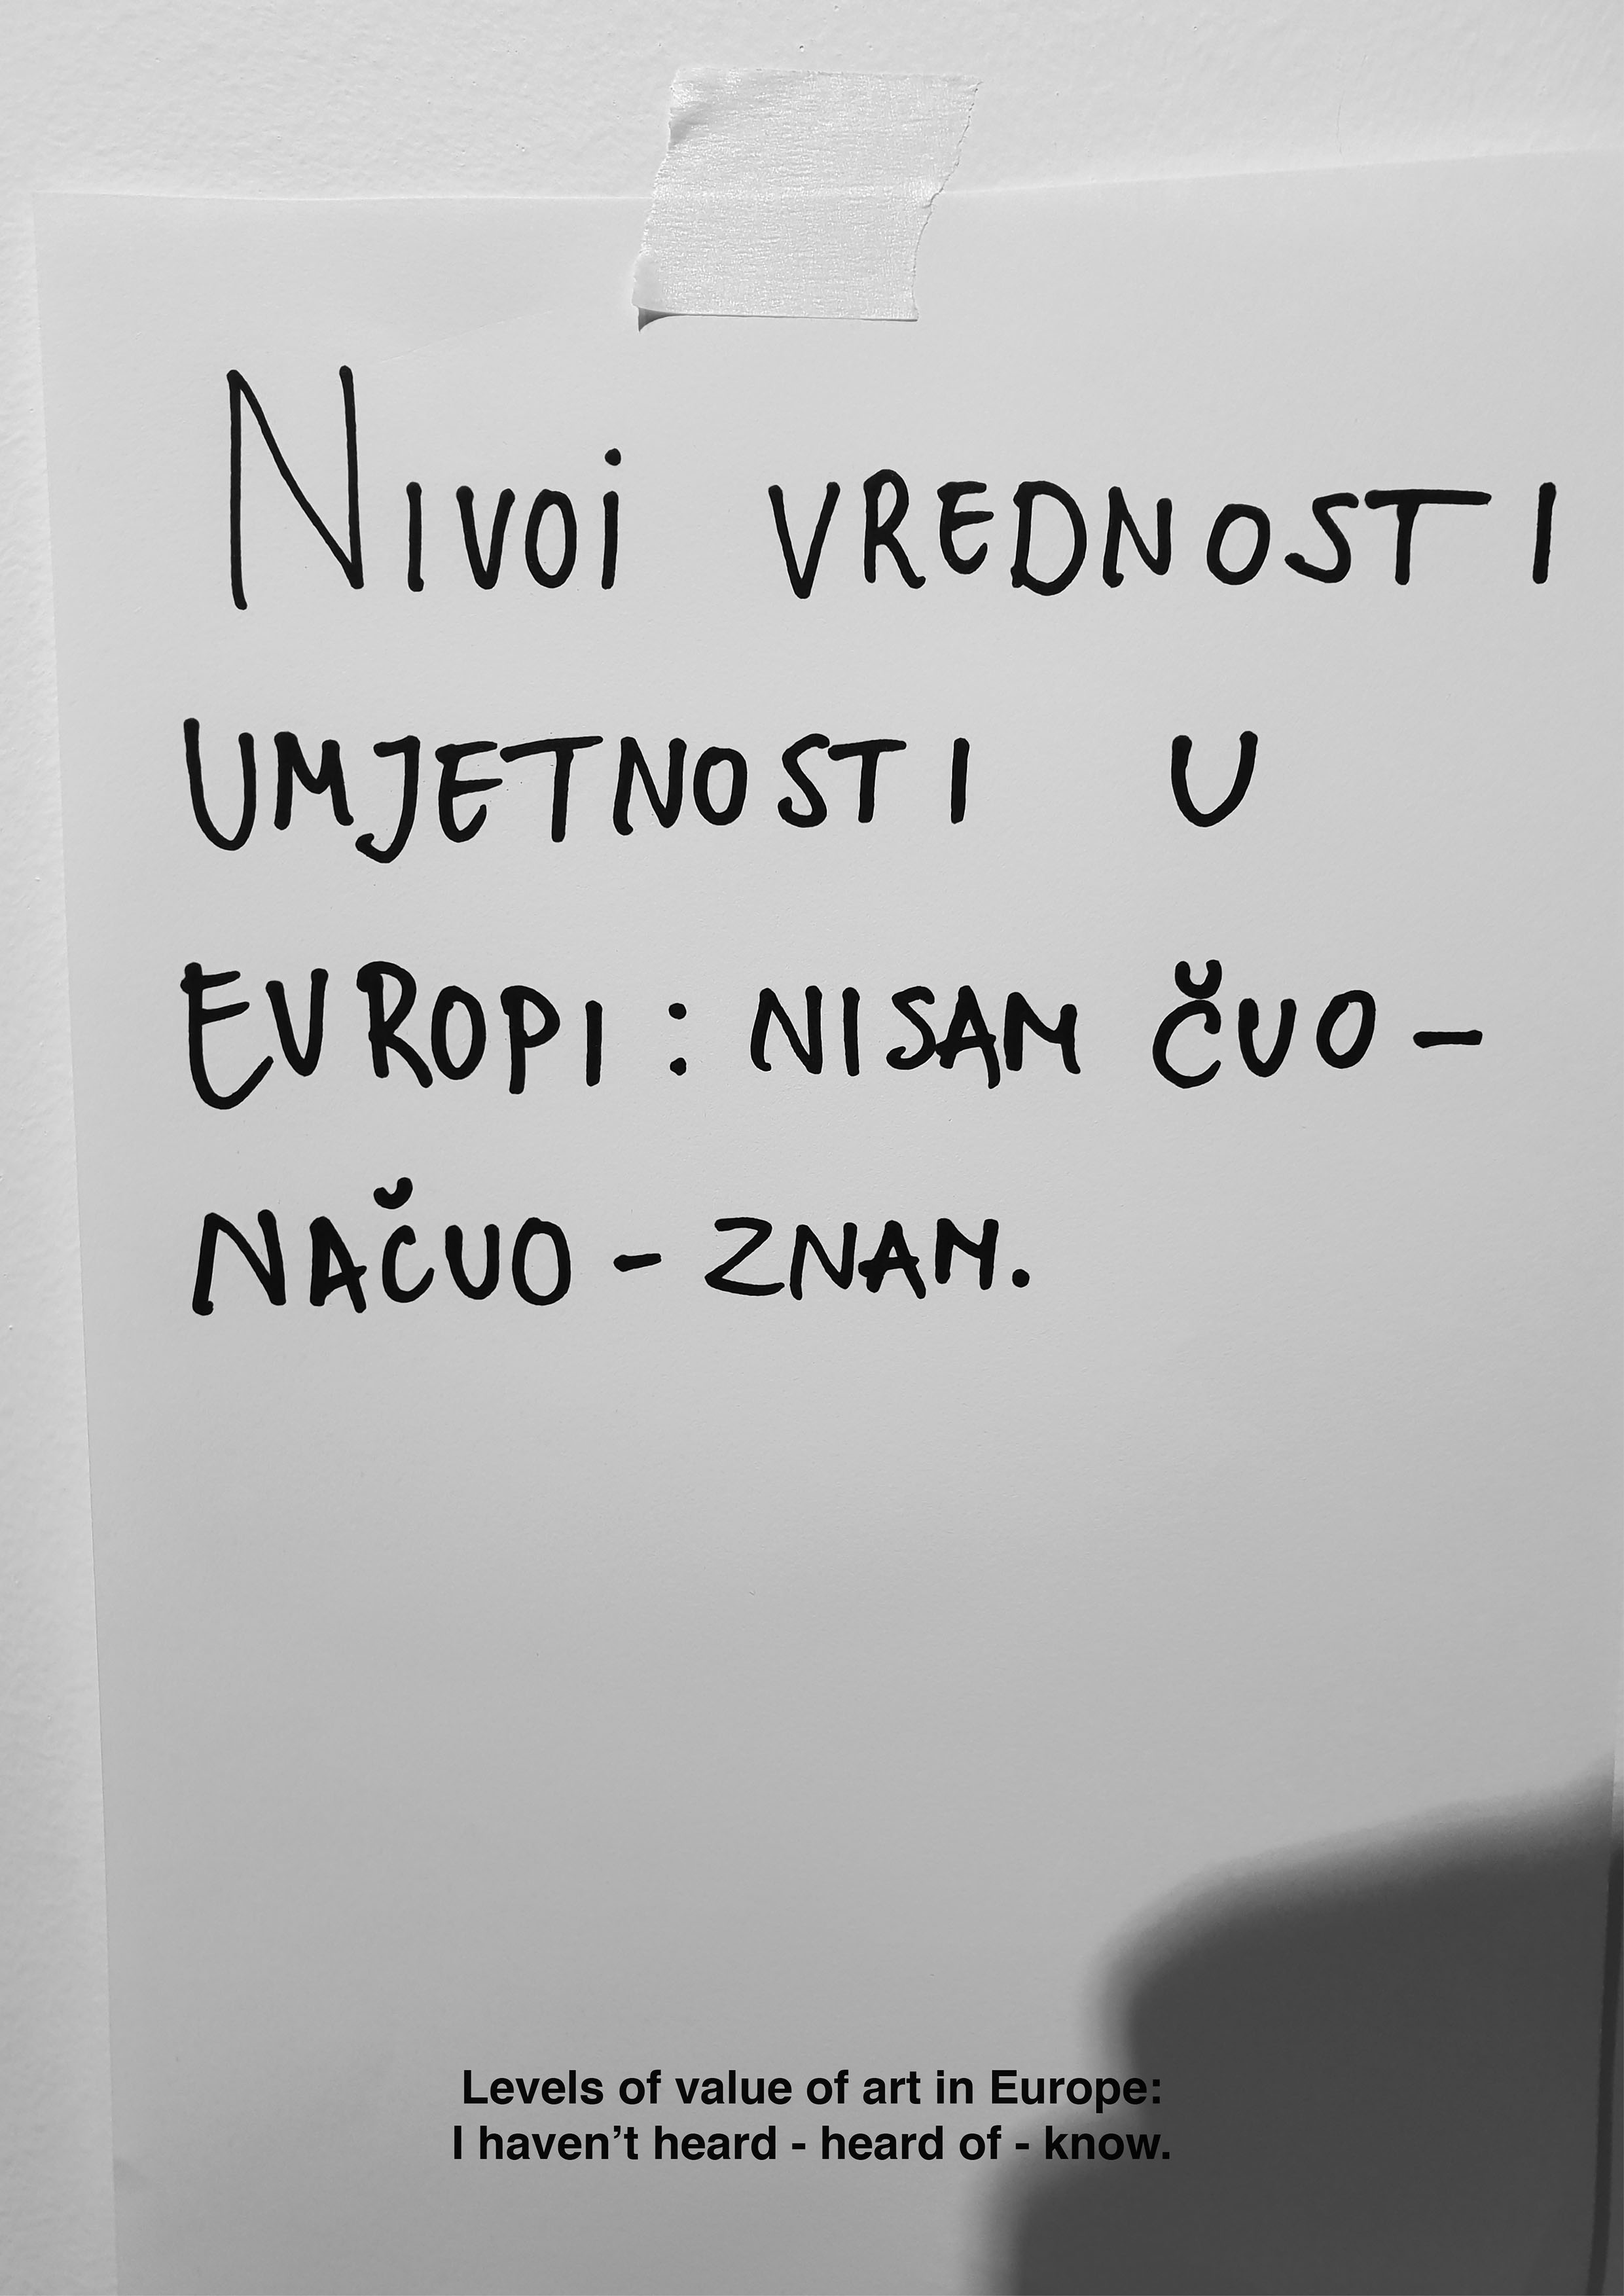 Nivoi VREDNOSTI
UMJETNOSTI U
EVROPI : NISAM ČUO -
NAČUO - ZNAM.
Levels of value of art in Europe:
I haven't heard - heard of - know.